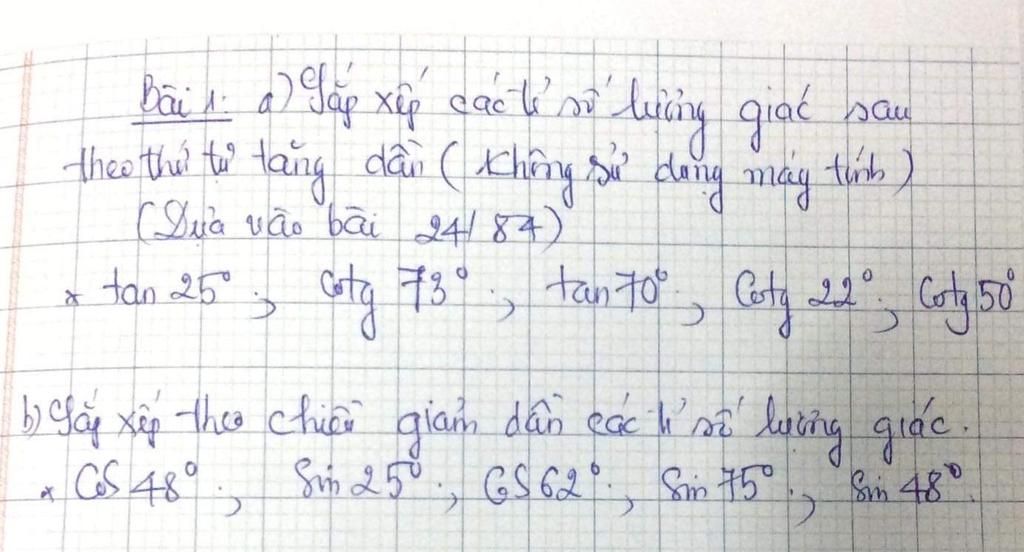 Bài 1: a) Sắp xếp các tỉ số lượng giác sau
theo thứ tự tăng dần ( không sử dụng máy tính )
(Dựa vào bài 24/84)
* tan 25°; Cotg 73°; tan 70°; Cotg 22°; Cotg 50°
b) Sắp xếp theo chiều giảm dần các tỉ số lượng giác.
* Cos 48°; Sin 25°; Cos 62°; Sin 75°; Sin 48°.